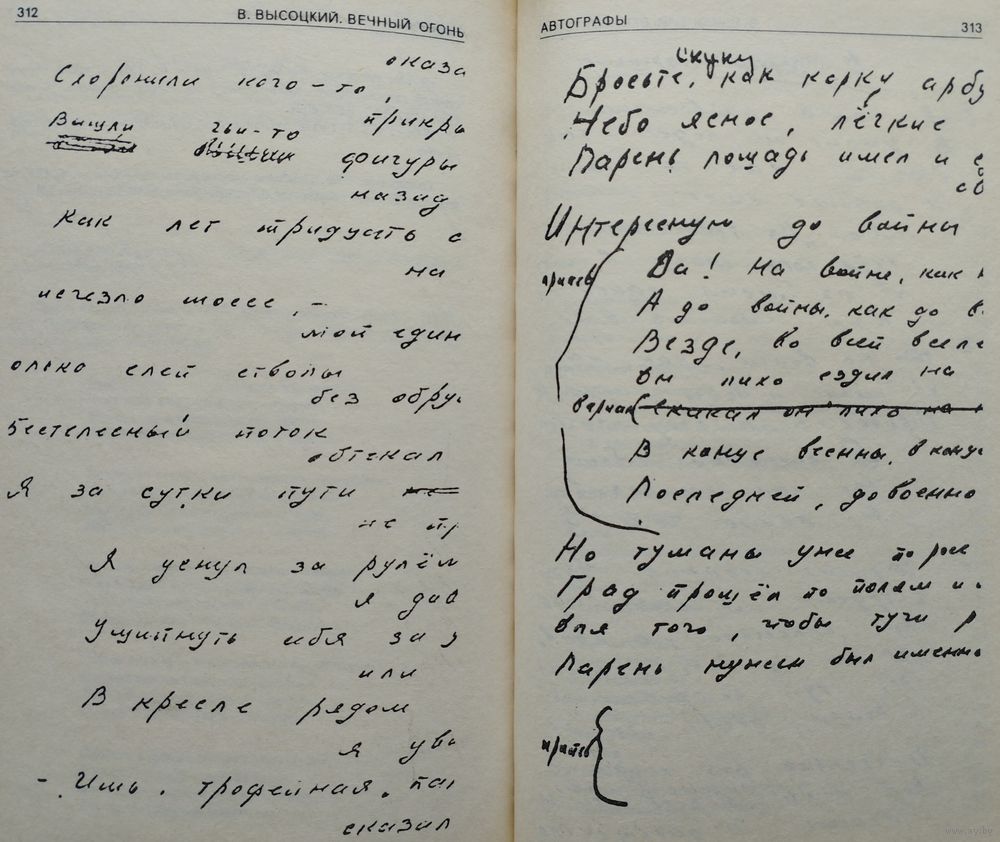 312
В. ВЫСОЦКИЙ. ВЕЧНЫЙ ОГОНЬ
оказа
Схоронили кого-то,
прикры
Вышли чьи-то
фигуры
назад
Как лет тридцать с
на
исчезло шоссе, -
мой един
олько елей стволы
без обру
Бестелесный поток
обтекал
Я за сутки пути
не пр
Я уснул за рулём
я дав
Ущипнуть себя за у
или
В кресле рядом
я уви
- Ишь, трофейная, па
сказал
АВТОГРАФЫ
313
скуку
Бросьте, как корку арбу
Небо ясное, лёгкие
Парень лошадь имел и с
об
Интересную до войны
припев
Да! На войне, как н
А до войны, как до в
Везде, во всей вселе
Он лихо ездил на
вариан
Скикал он лихо на
В конце весны, в конце
Последней, довоенно
Но туманы уже по росе
Град прошёл по полям и
Для того, чтобы тучи р
Парень нужен был именно
припев
www.ay.by